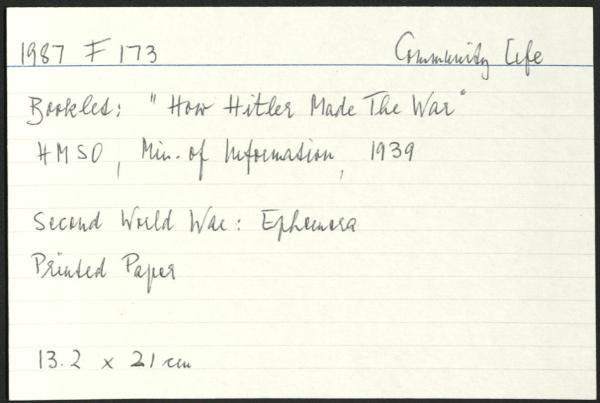 1987 F 173 Community Life
Booklet: "How Hitler Made The War"
HMSO, Min. of Information, 1939
Second World War: Ephemera
Printed Paper
13.2 x 21 cm